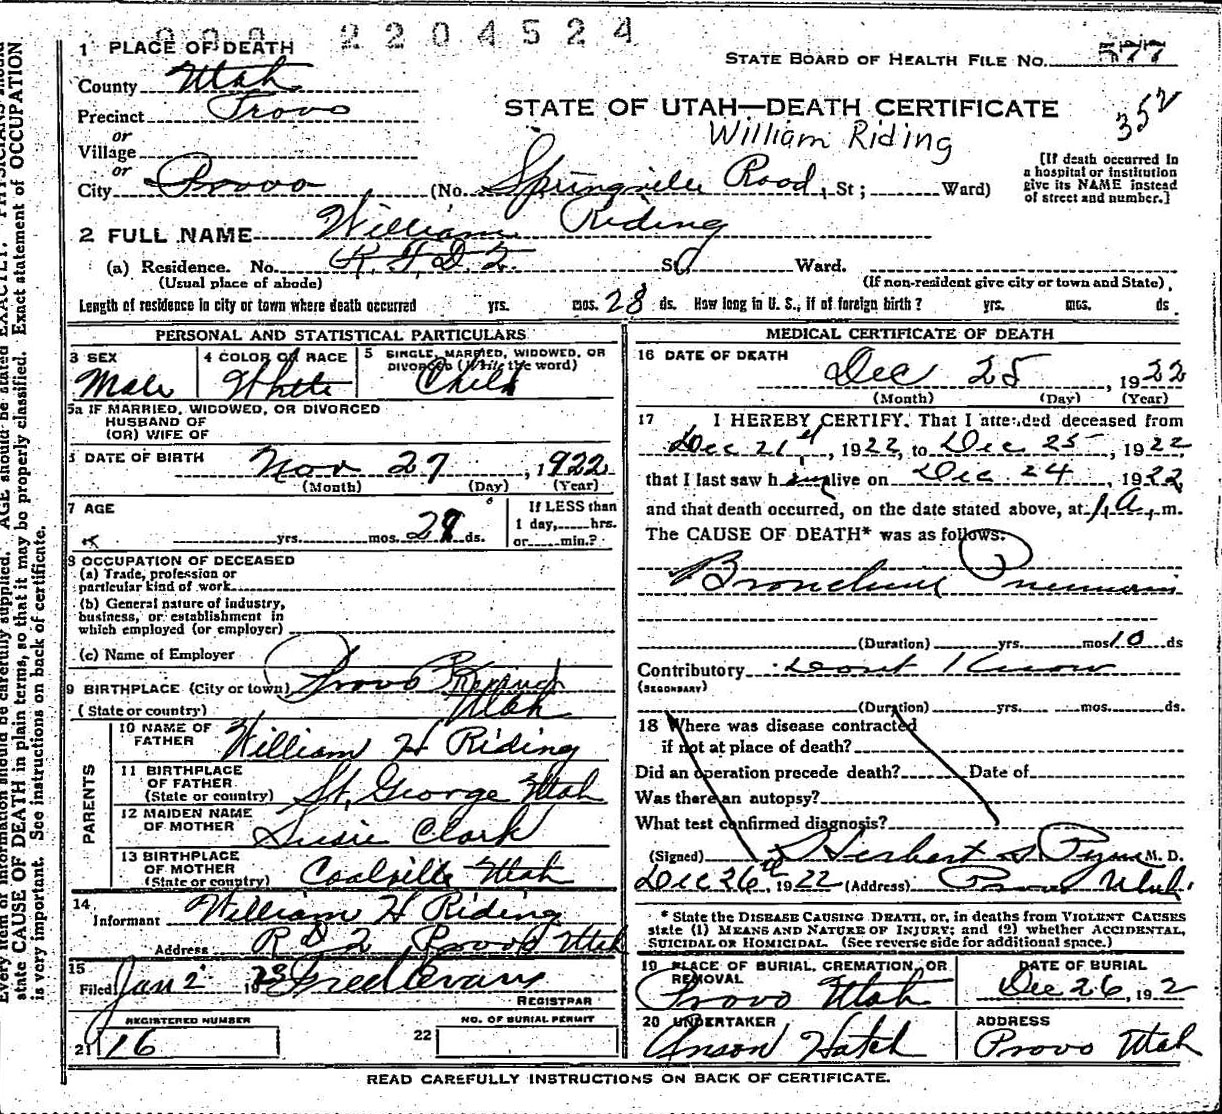 2204524
1 PLACE OF DEATH
STATE BOARD OF HEALTH FILE NO. 577
County Utah
Precinct Provo
STATE OF UTAH—DEATH CERTIFICATE
352
or
William Riding
Village
or
City Provo (No. Springville Road, St; Ward)
[If death occurred in a hospital or institution give its NAME instead of street and number.]
2 FULL NAME William Riding
(a) Residence. No. R.F.D.2. St, Ward.
(Usual place of abode) (If non-resident give city or town and State)
Length of residence in city or town where death occurred yrs. mos. 28 ds. How long in U. S., if of foreign birth? yrs. mos. ds.
PERSONAL AND STATISTICAL PARTICULARS
3 SEX Male
4 COLOR OR RACE White
5 SINGLE, MARRIED, WIDOWED, OR DIVORCED (Write the word) Child
5a IF MARRIED, WIDOWED, OR DIVORCED
HUSBAND OF
(OR) WIFE OF
DATE OF BIRTH Nov 27, 1922
(Month) (Day) (Year)
7 AGE yrs. mos. 28 ds.
If LESS than 1 day, hrs. or min.?
8 OCCUPATION OF DECEASED
(a) Trade, profession or particular kind of work
(b) General nature of industry, business, or establishment in which employed (or employer)
(c) Name of Employer
9 BIRTHPLACE (City or town) Provo
(State or country) Utah
PARENTS
10 NAME OF FATHER William H Riding
11 BIRTHPLACE OF FATHER (State or country) St. George Utah
12 MAIDEN NAME OF MOTHER Susie Clark
13 BIRTHPLACE OF MOTHER (State or country) Coalville Utah
14 Informant William H Riding
Address R D 2 Provo Utah
15 Filed Jan 2 1923 Fred Evans
REGISTRAR
REGISTERED NUMBER
NO. OF BURIAL PERMIT
21 16
22
MEDICAL CERTIFICATE OF DEATH
16 DATE OF DEATH Dec 25, 1922
(Month) (Day) (Year)
17 I HEREBY CERTIFY. That I attended deceased from
Dec 21st, 1922, to Dec 25, 1922
that I last saw him alive on Dec 24, 1922
and that death occurred, on the date stated above, at 1 A. m.
The CAUSE OF DEATH* was as follows:
Bronchial Pneumonia
(Duration) yrs. mos 10 ds
Contributory Don't Know
(SECONDARY)
(Duration) yrs. mos. ds.
18 Where was disease contracted
if not at place of death?
Did an operation precede death? Date of
Was there an autopsy?
What test confirmed diagnosis?
(Signed) Herbert S Pyne M. D.
Dec 26th, 1922 (Address) Provo Utah.
* State the DISEASE CAUSING DEATH, or, in deaths from VIOLENT CAUSES
state (1) MEANS AND NATURE OF INJURY; and (2) whether ACCIDENTAL,
SUICIDAL OR HOMICIDAL. (See reverse side for additional space.)
19 PLACE OF BURIAL, CREMATION, OR REMOVAL Provo Utah
DATE OF BURIAL Dec 26, 192
20 UNDERTAKER Anson Hatch
ADDRESS Provo Utah
READ CAREFULLY INSTRUCTIONS ON BACK OF CERTIFICATE.
Every item of information should be carefully supplied. AGE should be stated EXACTLY. PHYSICIANS should
state CAUSE OF DEATH in plain terms, so that it may be properly classified. Exact statement of OCCUPATION
is very important. See instructions on back of certificate.